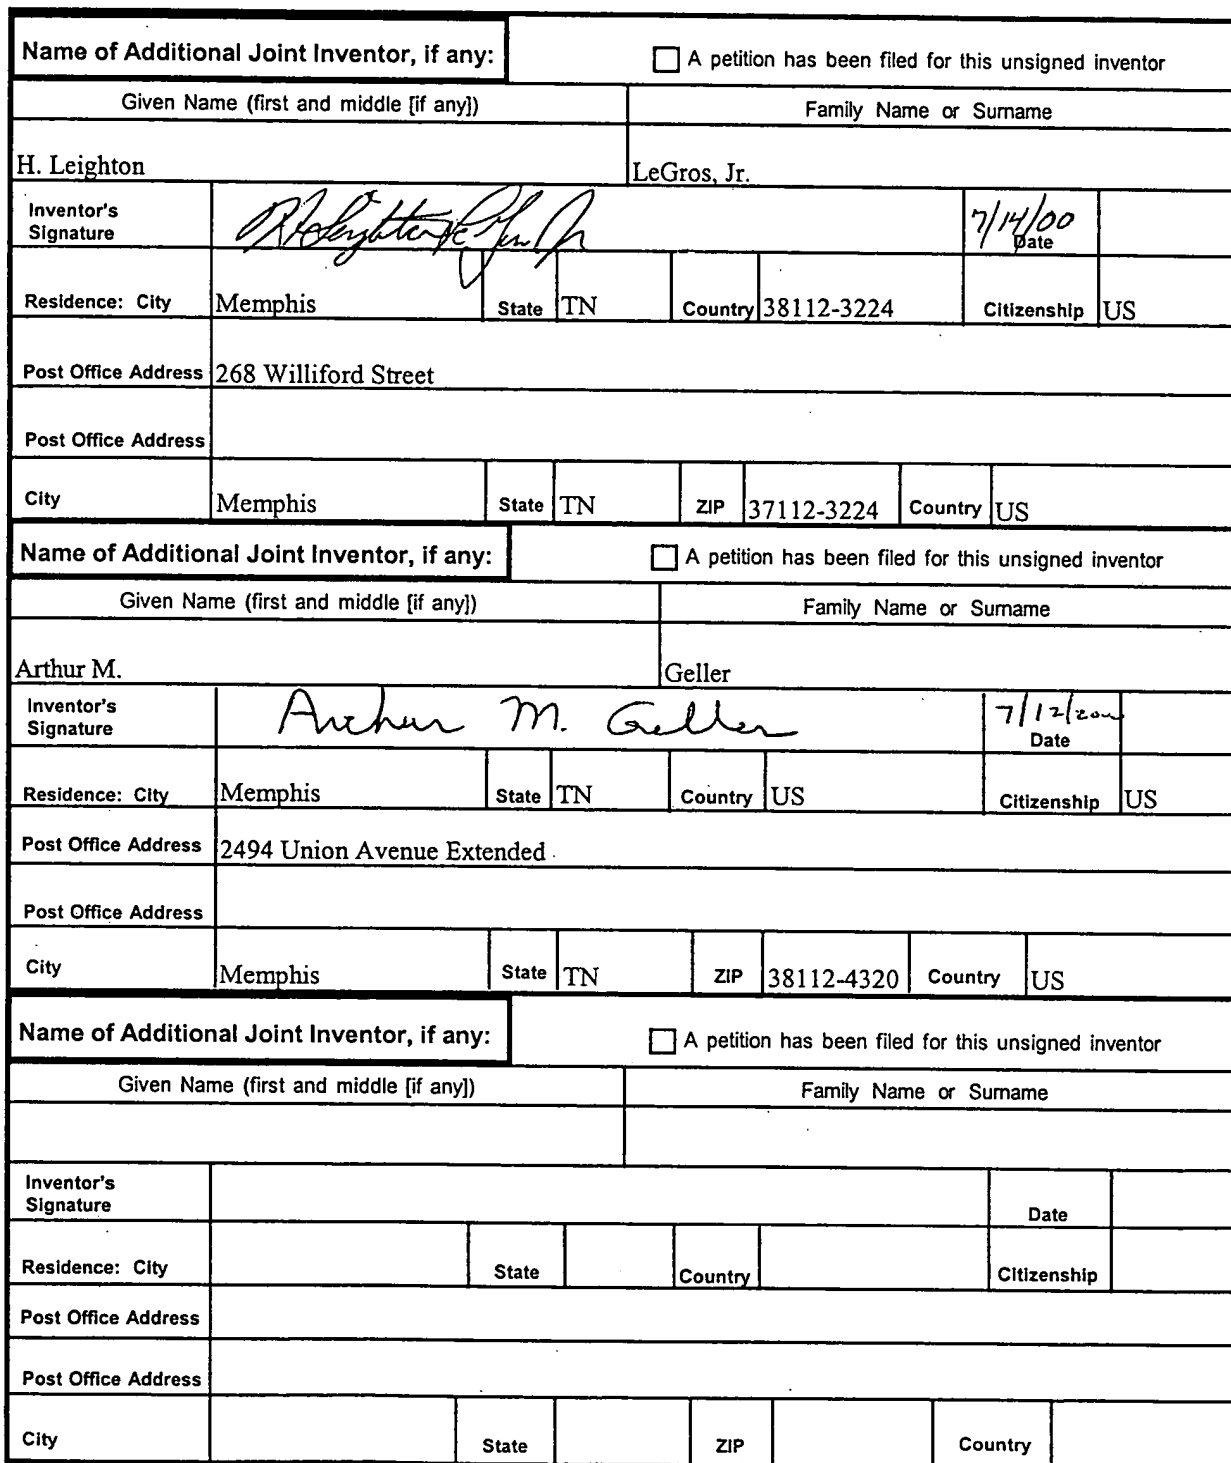 Name of Additional Joint Inventor, if any: A petition has been filed for this unsigned inventor
Given Name (first and middle [if any]) Family Name or Surname
H. Leighton LeGros, Jr.
Inventor's
Signature 7/14/00
Date
Residence: City Memphis State TN Country 38112-3224 Citizenship US
Post Office Address 268 Williford Street
Post Office Address
City Memphis State TN ZIP 37112-3224 Country US
Name of Additional Joint Inventor, if any: A petition has been filed for this unsigned inventor
Given Name (first and middle [if any]) Family Name or Surname
Arthur M. Geller
Inventor's
Signature Arthur M. Geller 7/12/2000
Date
Residence: City Memphis State TN Country US Citizenship US
Post Office Address 2494 Union Avenue Extended
Post Office Address
City Memphis State TN ZIP 38112-4320 Country US
Name of Additional Joint Inventor, if any: A petition has been filed for this unsigned inventor
Given Name (first and middle [if any]) Family Name or Surname
Inventor's
Signature Date
Residence: City State Country Citizenship
Post Office Address
Post Office Address
City State ZIP Country